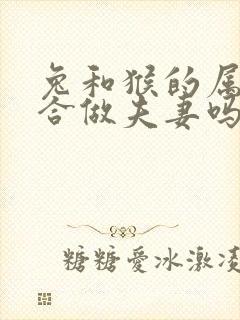 兔和猴的属
合做夫妻吗
糖糖愛冰激凌